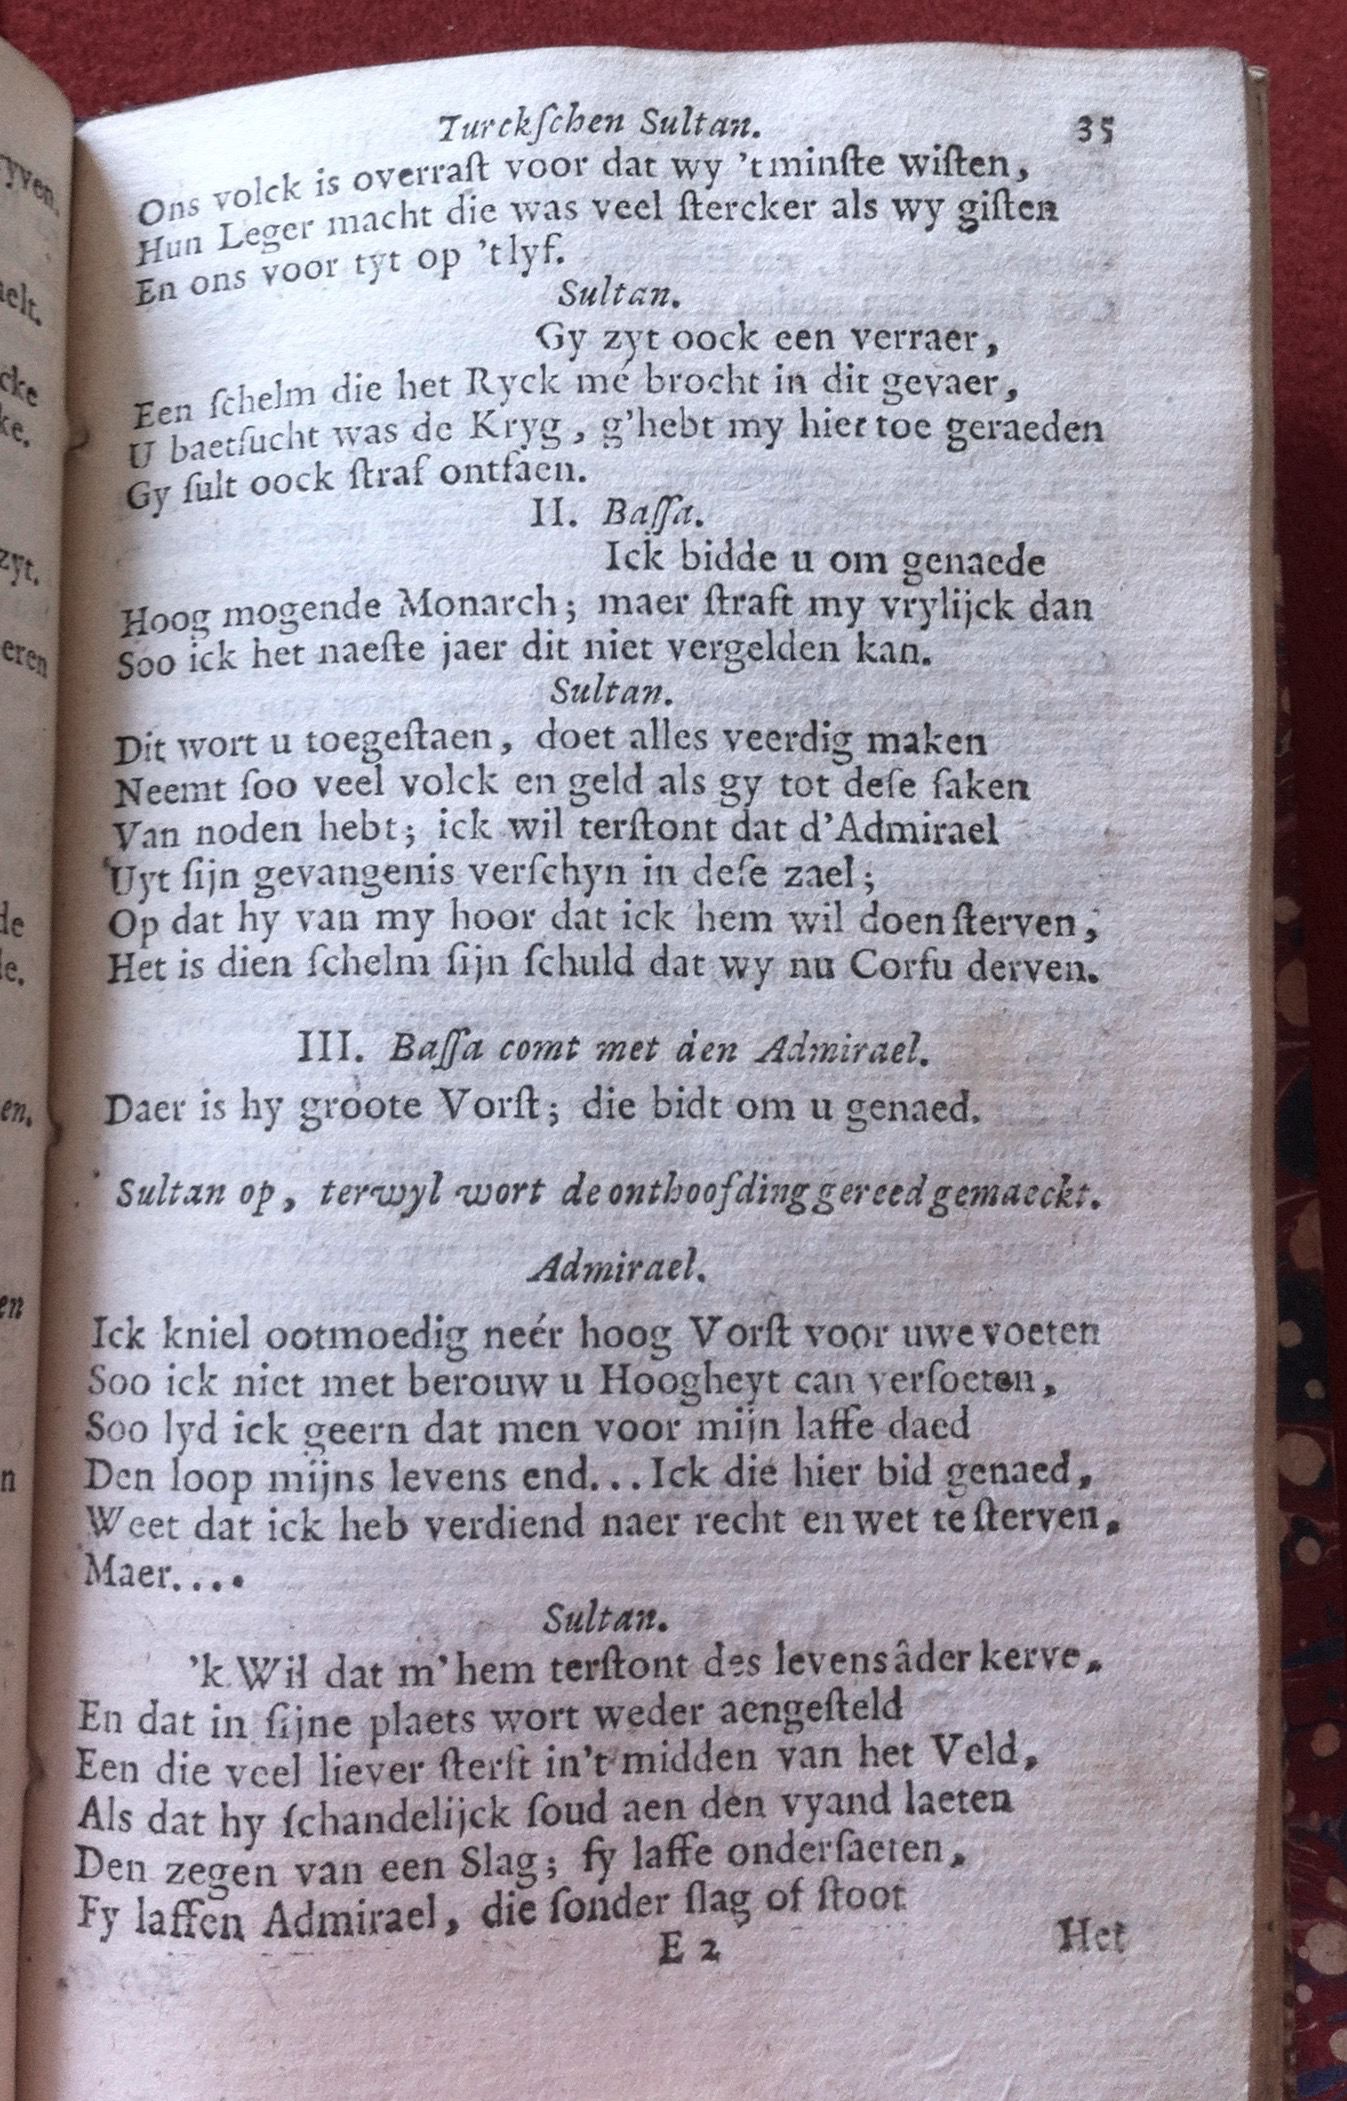 Turckſchen Sultan. 35
Ons volck is overraſt voor dat wy 't minſte wiſten,
Hun Leger macht die was veel ſtercker als wy giſten
En ons voor tyt op 't lyf.
Sultan.
Gy zyt oock een verraer,
Een ſchelm die het Ryck mé brocht in dit gevaer,
U baetſucht was de Kryg, g'hebt my hier toe geraeden
Gy ſult oock ſtraf ontfaen.
II. Baſſa.
Ick bidde u om genaede
Hoog mogende Monarch; maer ſtraft my vrylijck dan
Soo ick het naeſte jaer dit niet vergelden kan.
Sultan.
Dit wort u toegeſtaen, doet alles veerdig maken
Neemt ſoo veel volck en geld als gy tot deſe ſaken
Van noden hebt; ick wil terſtont dat d'Admirael
Uyt ſijn gevangenis verſchyn in deſe zael;
Op dat hy van my hoor dat ick hem wil doen ſterven,
Het is dien ſchelm ſijn ſchuld dat wy nu Corfu derven.
III. Baſſa comt met den Admirael.
Daer is hy groote Vorſt; die bidt om u genaed.
Sultan op, terwyl wort de onthoofding gereed gemaeckt.
Admirael.
Ick kniel ootmoedig neér hoog Vorſt voor uwe voeten
Soo ick niet met berouw u Hoogheyt can verſoeten,
Soo lyd ick geern dat men voor mijn laffe daed
Den loop mijns levens end... Ick die hier bid genaed,
Weet dat ick heb verdiend naer recht en wet te ſterven,
Maer....
Sultan.
'k Wil dat m'hem terſtont des levens âder kerve,
En dat in ſijne plaets wort weder aengeſteld
Een die veel liever ſterft in't midden van het Veld,
Als dat hy ſchandelijck ſoud aen den vyand laeten
Den zegen van een Slag; fy laffe onderſaeten,
Fy laffen Admirael, die ſonder ſlag of ſtoot
E 2 Het
yven.
elt.
cke
ke.
zyt.
eren
de
le.
en.
en
n